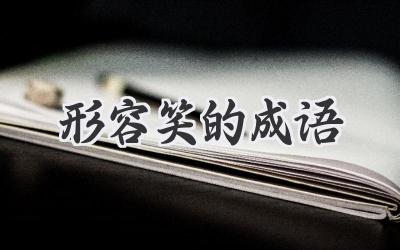 形容笑的成语